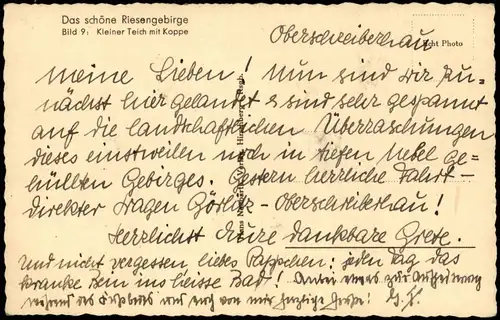 Das schöne Riesengebirge
Bild 9: Kleiner Teich mit Koppe
Oberschreiberhau
Echt Photo
Meine Lieben! Nun sind wir zu-
nächst hier gelandet & sind sehr gespannt
auf die landschaftlichen Überraschungen
dieses einstweilen noch in tiefen Nebel ge-
hüllten Gebirges. Gestern herrliche Fahrt –
direkter Wagen Görlitz – Oberschreiberhau!
Herzlichst Eure dankbare Grete.
Und nicht vergessen liebes Pappchen: jeden Tag das
kranke Bein ins heisse Bad!
von mir herzliche